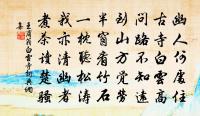 幽人何處住
古寺白雲高
問路不知遠
到山方覺勞
半窗看竹石
一枕聽松濤
我亦清幽者
煮茶讀楚騷
白雲寺